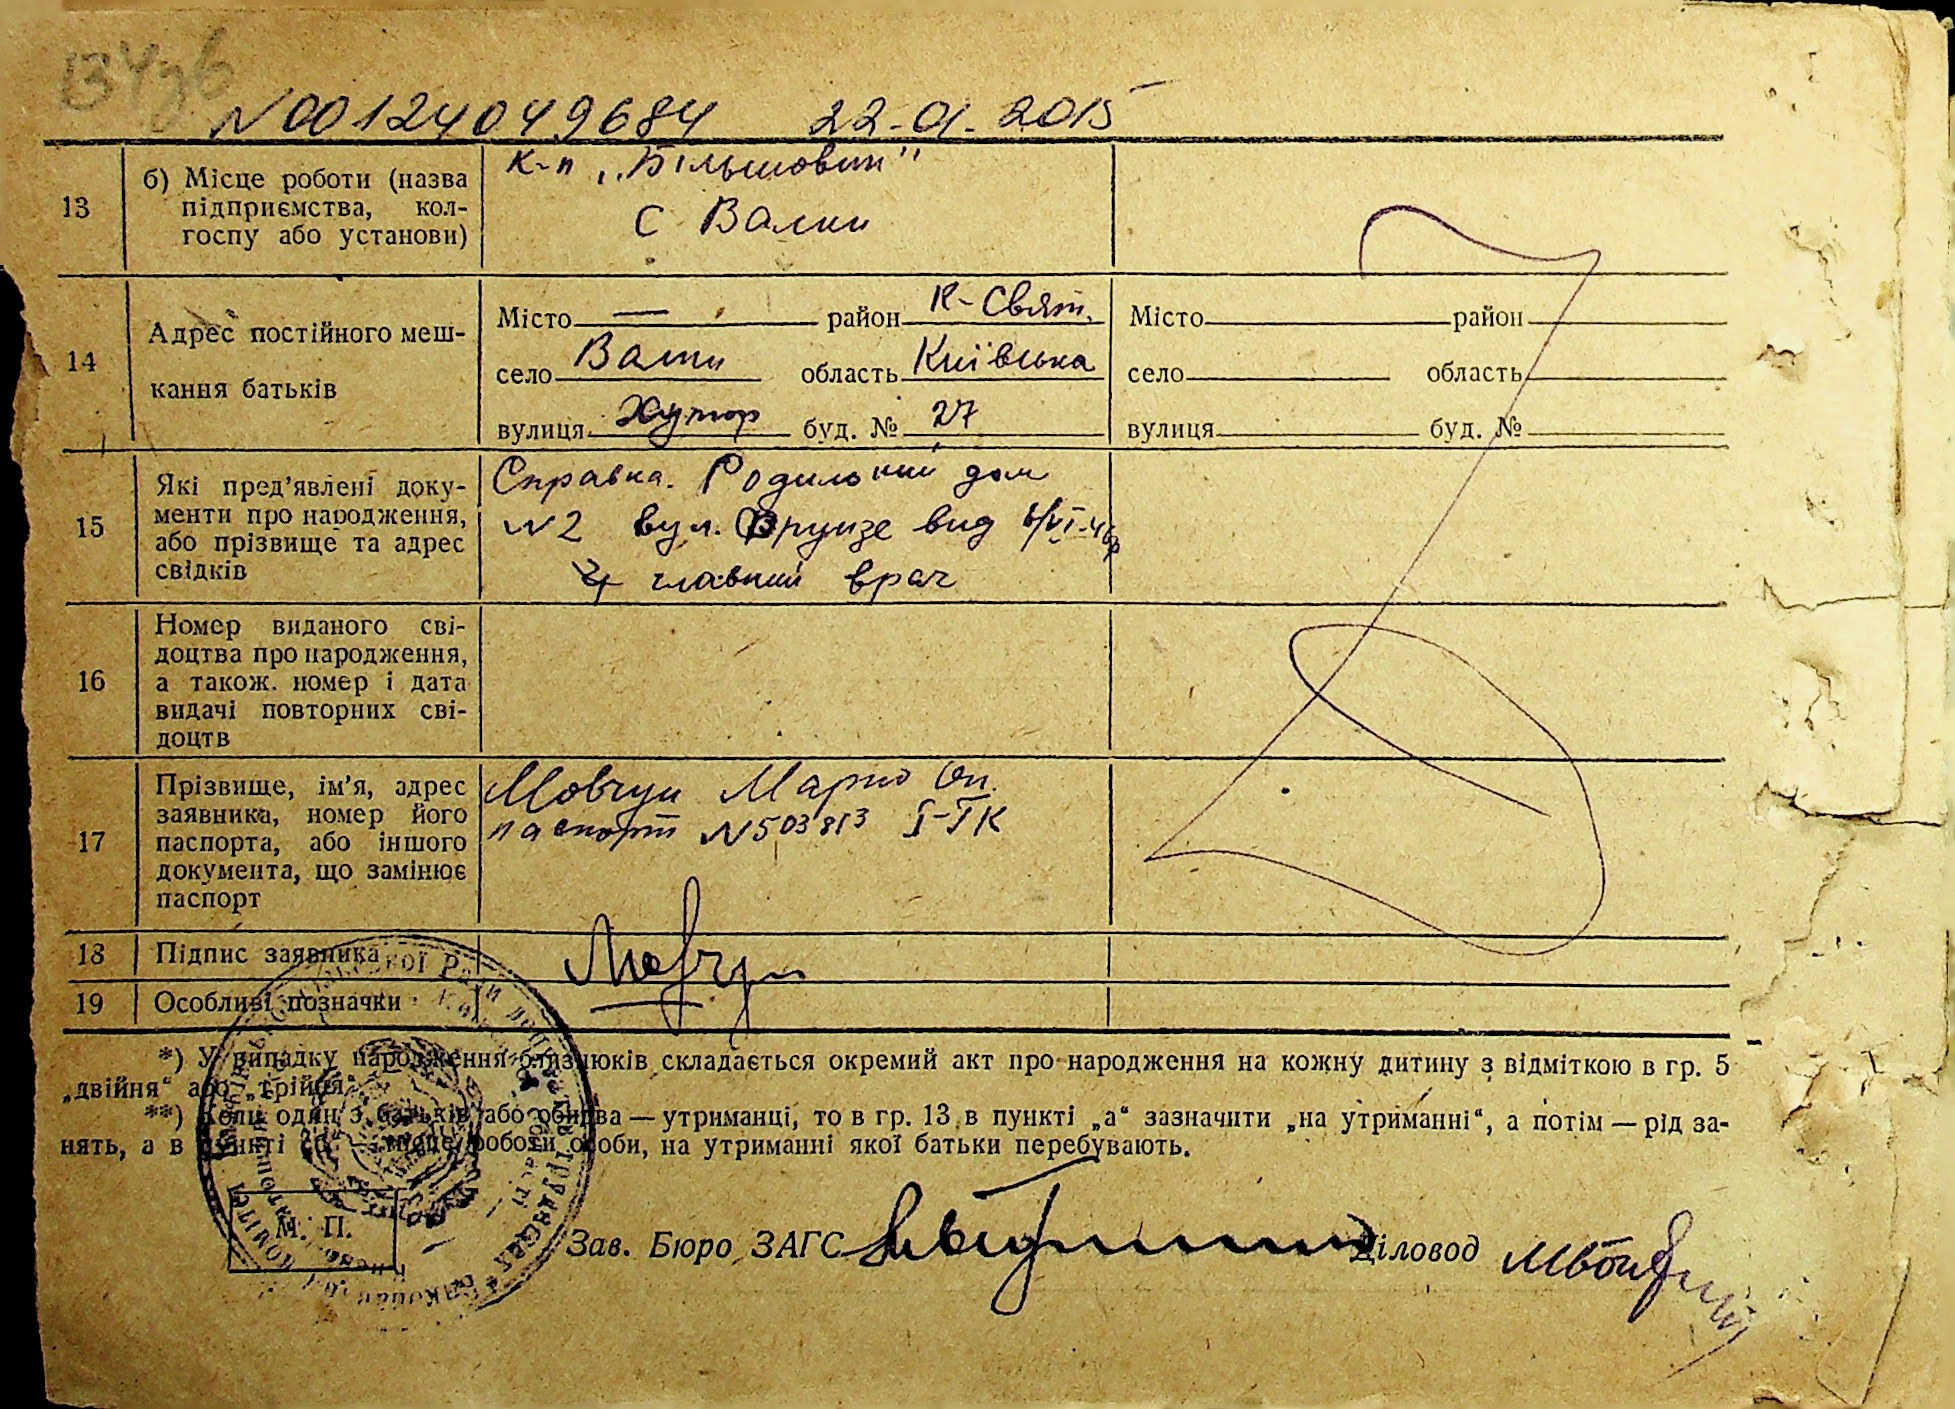 N00124049684 22-01-2015
13
б) Місце роботи (назва
підприємства, кол-
госпу або установи)
к-п „Більшовик"
С Валки
14
Адрес постійного меш-
кання батьків
Місто — район К-Свят.
село область Київська
вулиця Хутор буд. № 27
Місто район
село область
вулиця буд. №
15
Які пред'явлені доку-
менти про народження,
або прізвище та адрес
свідків
Справка. Родильний дом
N2 вул. Фрунзе вид
главний врач
16
Номер виданого сві-
доцтва про народження,
а також. номер і дата
видачі повторних сві-
доцтв
17
Прізвище, ім'я, адрес
заявника, номер його
паспорта, або іншого
документа, що замінює
паспорт
Мовчун Марко
паспорт N503813 I-ТК
18 Підпис заявника
Мовчун
19 Особливі позначки
*) У випадку народження близнюків складається окремий акт про народження на кожну дитину з відміткою в гр. 5
„двійня“ або „трійня“.
**) Коли один з батьків або обидва — утриманці, то в гр. 13 в пункті „а“ зазначити „на утриманні“, а потім — рід за-
нять, а в пункті „б“ — місце роботи особи, на утриманні якої батьки перебувають.
М. П.
Зав. Бюро ЗАГС Діловод